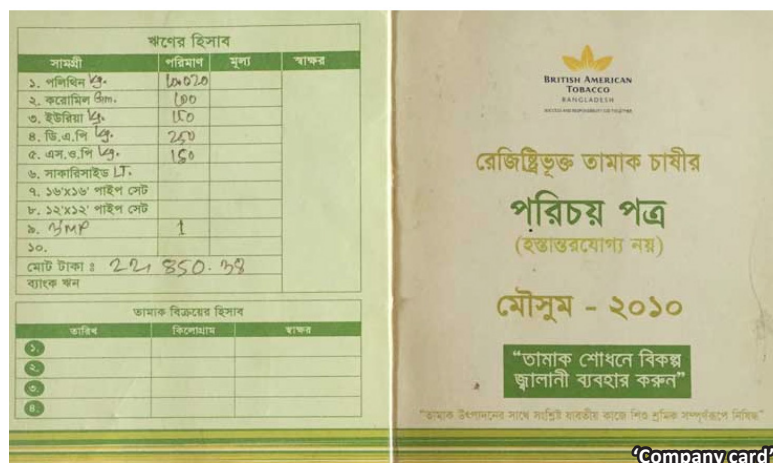 ঋণের হিসাব
সামগ্রী পরিমাণ মূল্য স্বাক্ষর
১. পলিথিন Kg.
২. করোমিল Gm. 100
৩. ইউরিয়া Kg. 150
৪. ডি.এ.পি Kg. 250
৫. এস.ও.পি Kg. 150
৬. সাকারিসাইড LT.
৭. ১৬'x১৬' পাইপ সেট
৮. ১২'x১২' পাইপ সেট
৯. 1
১০.
মোট টাকা ঃ 22,850.38
ব্যাংক ঋন
তামাক বিক্রয়ের হিসাব
তারিখ কিলোগ্রাম স্বাক্ষর
১.
২.
৩.
৪.
BRITISH AMERICAN
TOBACCO
BANGLADESH
রেজিষ্ট্রিভূক্ত তামাক চাষীর
পরিচয় পত্র
(হস্তান্তরযোগ্য নয়)
মৌসুম - ২০১০
“তামাক শোধনে বিকল্প
জ্বালানী ব্যবহার করুন”
“তামাক উৎপাদনের সাথে সংশ্লিষ্ট যাবতীয় কাজে শিশু শ্রমিক সম্পূর্ণরূপে নিষিদ্ধ”
‘Company card’